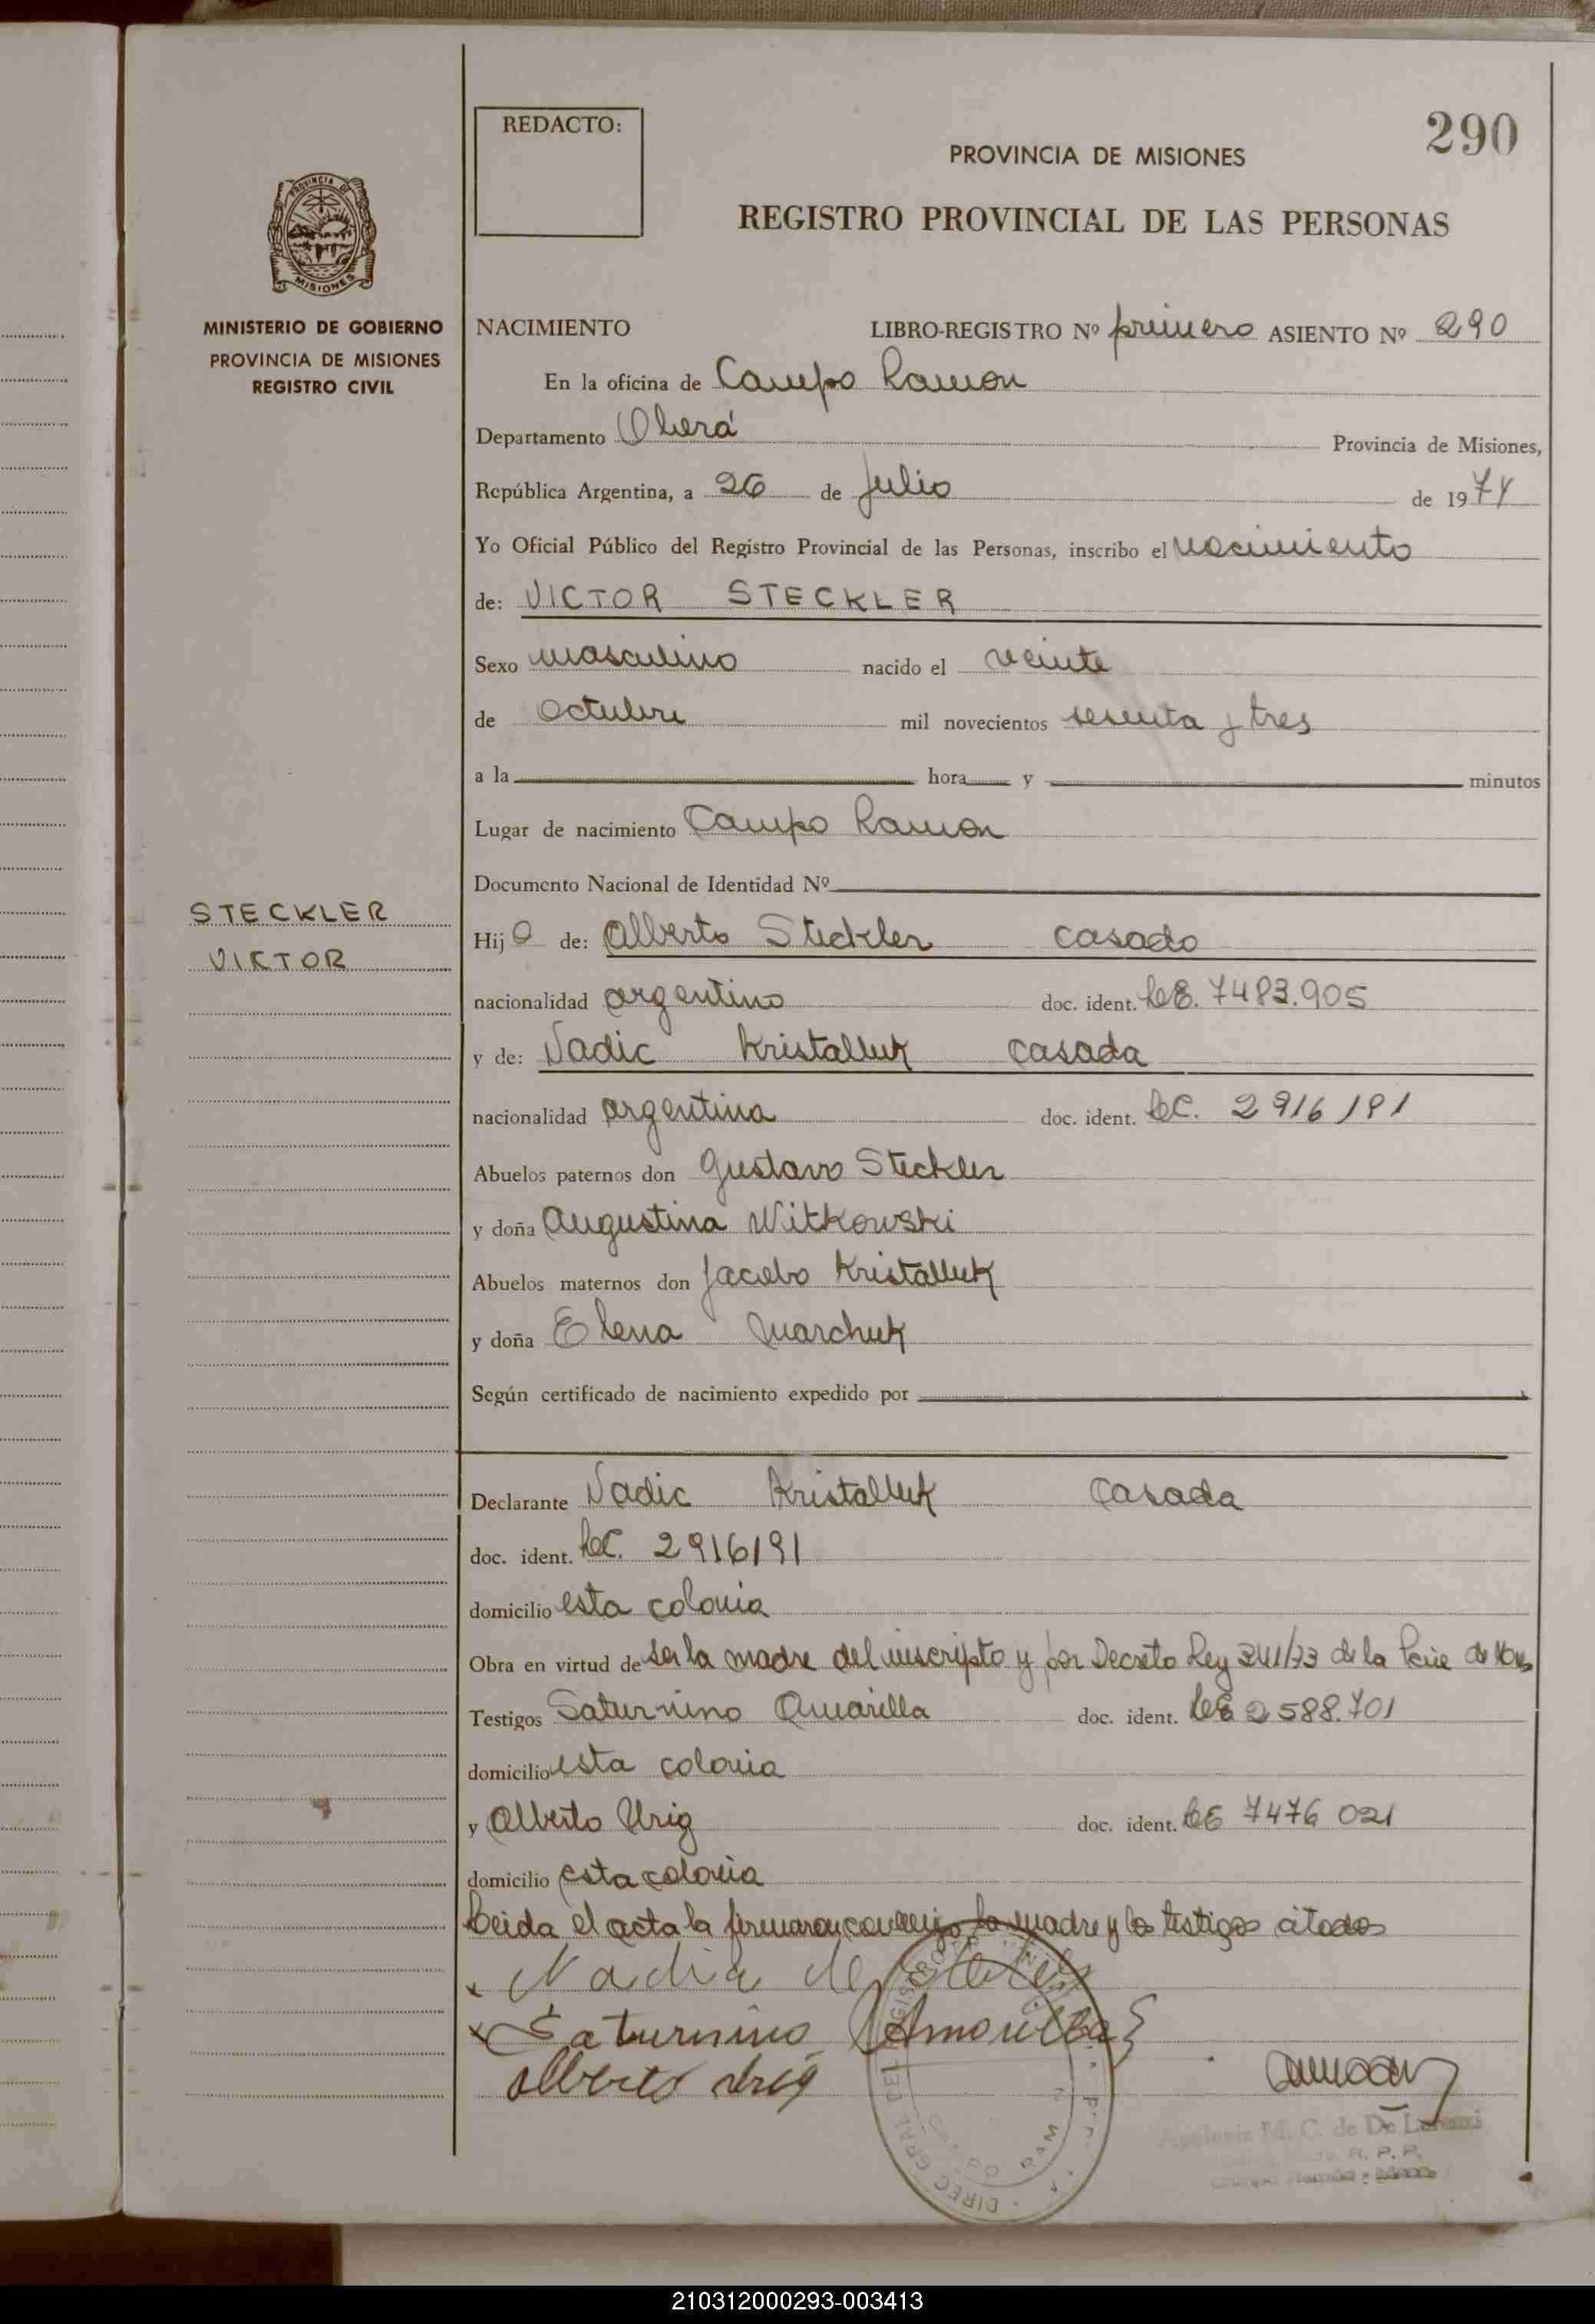 290
REDACTO:
PROVINCIA DE MISIONES
REGISTRO PROVINCIAL DE LAS PERSONAS
PROVINCIA DE
MISIONES
MINISTERIO DE GOBIERNO
PROVINCIA DE MISIONES
REGISTRO CIVIL
NACIMIENTO LIBRO-REGISTRO Nº primero ASIENTO Nº 290
En la oficina de Campo Ramon
Departamento Oberá Provincia de Misiones,
República Argentina, a 26 de Julio de 1974
Yo Oficial Público del Registro Provincial de las Personas, inscribo el nacimiento
de: VICTOR STECKLER
Sexo masculino nacido el veinte
de octubre mil novecientos sesenta y tres
a la hora y minutos
Lugar de nacimiento Campo Ramon
Documento Nacional de Identidad Nº
STECKLER
VICTOR
Hijo de: Alberto Steckler casado
nacionalidad argentino doc. ident. LE. 7483.905
y de: Nadic Kristalluk casada
nacionalidad argentina doc. ident. LC. 2916191
Abuelos paternos don Gustavo Steckler
y doña Augustina Witkowski
Abuelos maternos don Jacobo Kristalluk
y doña Elena Marchuk
Según certificado de nacimiento expedido por
Declarante Nadic Kristalluk casada
doc. ident. LC. 2916191
domicilio esta colonia
Obra en virtud de ser la madre del inscripto y por Decreto Ley 341/73 de la de
Testigos Saturnino Amarilla doc. ident. LE 2588.701
domicilio esta colonia
y Alberto Urig doc. ident. LE 7476 021
domicilio esta colonia
Leida el acta la firmaron conmigo la madre y los testigos citados
x Nadia de
x Saturnino Amarilla
Alberto Urig
DIREC GRAL DEL REGISTRO
CAMPO RAM
Apolonia M. C. de De Lorenzi
R. P. P.
210312000293-003413